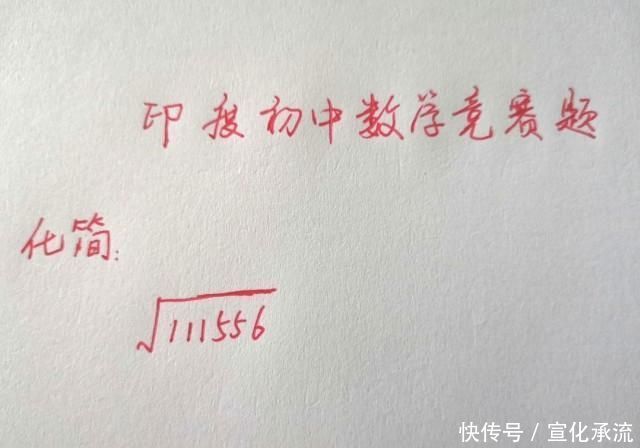 印度初中数学竞赛题
化简:
√111556
快传号/宣化承流